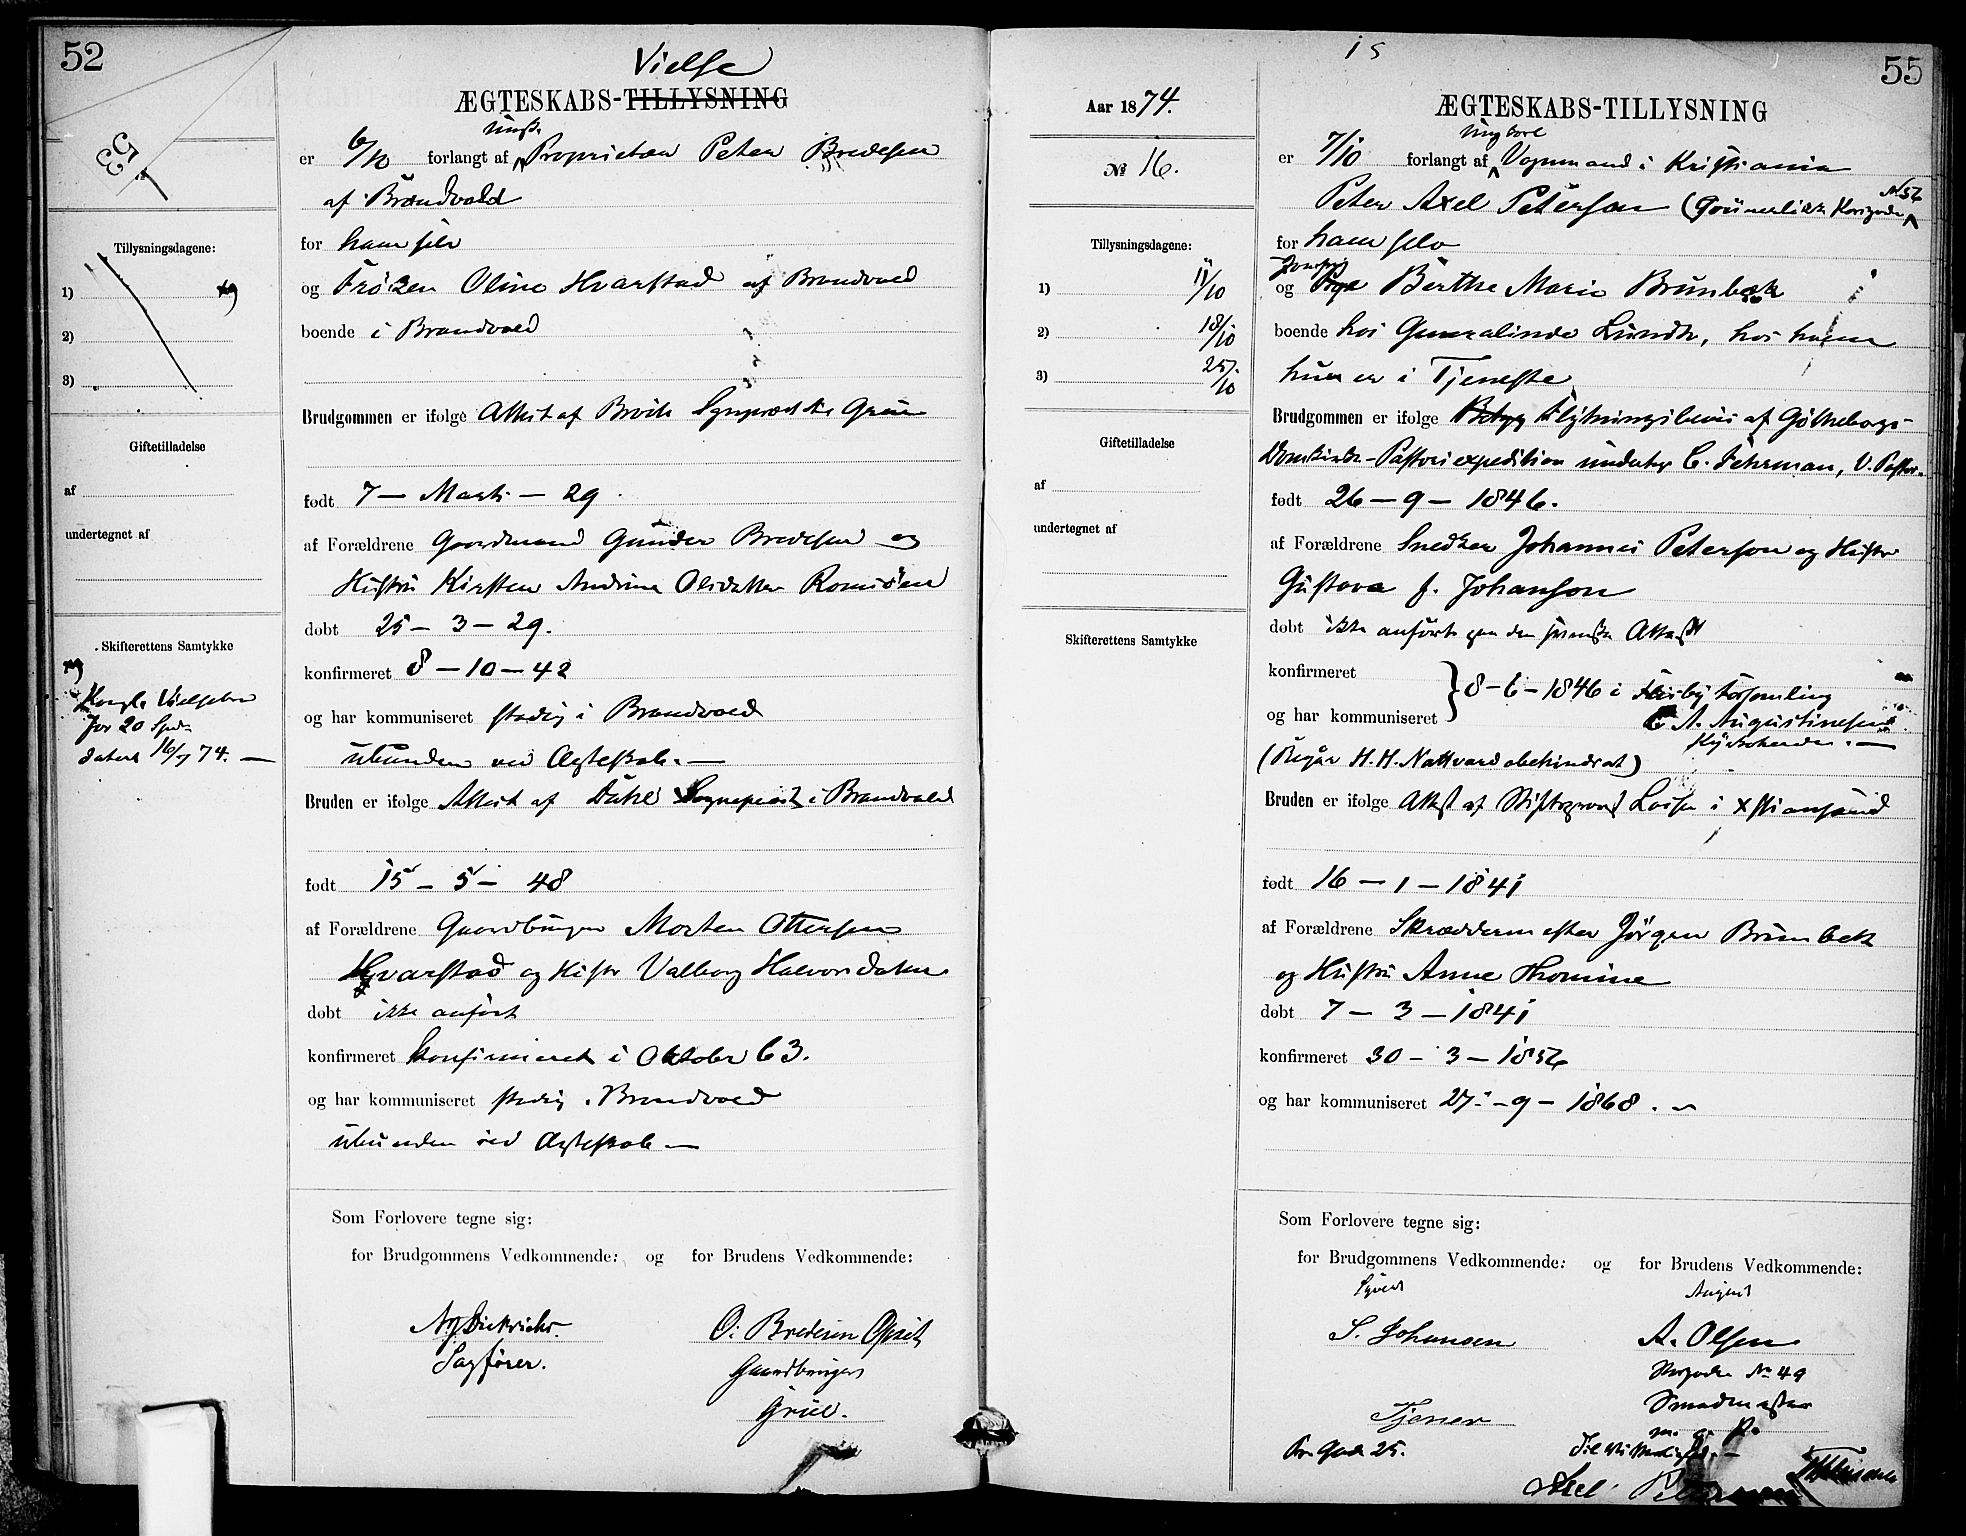 52
53
Vielse
ÆGTESKABS-TILLYSNING
er 6/10 forlangt af Proprietær Peter Bredesen
af Brandvold
for ham selv
og Frøken Oline Hvarstad af Brandvold
boende i Brandvold
Tillysningsdagene:
1)
2)
3)
Giftetilladelse
af
undertegnet af
Skifterettens Samtykke
Kongl. Vielsebrev
for 20 Spd.
dateret 16/7 74. —
Brudgommen er ifølge Attest af Sognepræst Grue
født 7 — Marts — 29.
af Forældrene Gaardmand Gunder Bredesen og
Hustru Kirsten Andrine Olsdatter
døbt 25 — 3 — 29.
konfirmeret 8 — 10 — 42
og har kommuniseret stadig i Brandvold
ubunden ved Ægteskab. —
Bruden er ifølge Attest af Dahl Sognepræst i Brandvold
født 15 — 5 — 48
af Forældrene Gaardbruger Morten Ottersen
Hvarstad og Hustr Valborg Halvorsdatter
døbt ikke anført
konfirmeret konfirmeret i Oktober 63.
og har kommuniseret stadig i Brandvold
ubunden ved Ægteskab —
Som Forlovere tegne sig:
for Brudgommens Vedkommende: og for Brudens Vedkommende:
Diedrichs.
Sagfører.
O. Bredesen Opset
Gaardbruger
Grue.
Aar 1874.
№ 16.
Tillysningsdagene:
1) 11/10
2) 18/10
3) 25/10
Giftetilladelse
af
undertegnet af
Skifterettens Samtykke
15
55
ÆGTESKABS-TILLYSNING
er 7/10 forlangt af Ungkarl Vognmand i Kristiania
Peter Axel Peterson (Grünerløkken Korsgaden № 56
for ham selv
og Jomfru Pige Berthe Marie Brunbæk
boende hos Generalinde Lundh, hos hvem
hun er i Tjeneste
Brudgommen er ifølge Flytningsbevis af Gøtheborgs-
Domkirke-Pastorsexpedition undertegn C. Fehrman, V. Pastor
født 26 — 9 — 1846.
af Forældrene Snedker Johannes Peterson og Hustr
Gustava f. Johanson
døbt ikke anført paa den svenske Attest
konfirmeret
og har kommuniseret } 8 — 6 — 1846 i Församling
A. Augustinesen
Kyrkoherde. —
(Begår H. H. Nattvard obehindrat)
Bruden er ifølge Attest af Stiftsprovst i Xstiansand
født 16 — 1 — 1841
af Forældrene Skræddermester Jørgen Brunbek
og Hustru Anne Thomine
døbt 7 — 3 — 1841
konfirmeret 30 — 3 — 1856
og har kommuniseret 27 — 9 — 1868.
Som Forlovere tegne sig:
for Brudgommens Vedkommende: og for Brudens Vedkommende:
Syvert
S. Johansen
Tjener
Gade 25.
August
A. Olsen
Korsgaden № 49
Smedmester
m. p. P.
Axel Peterson